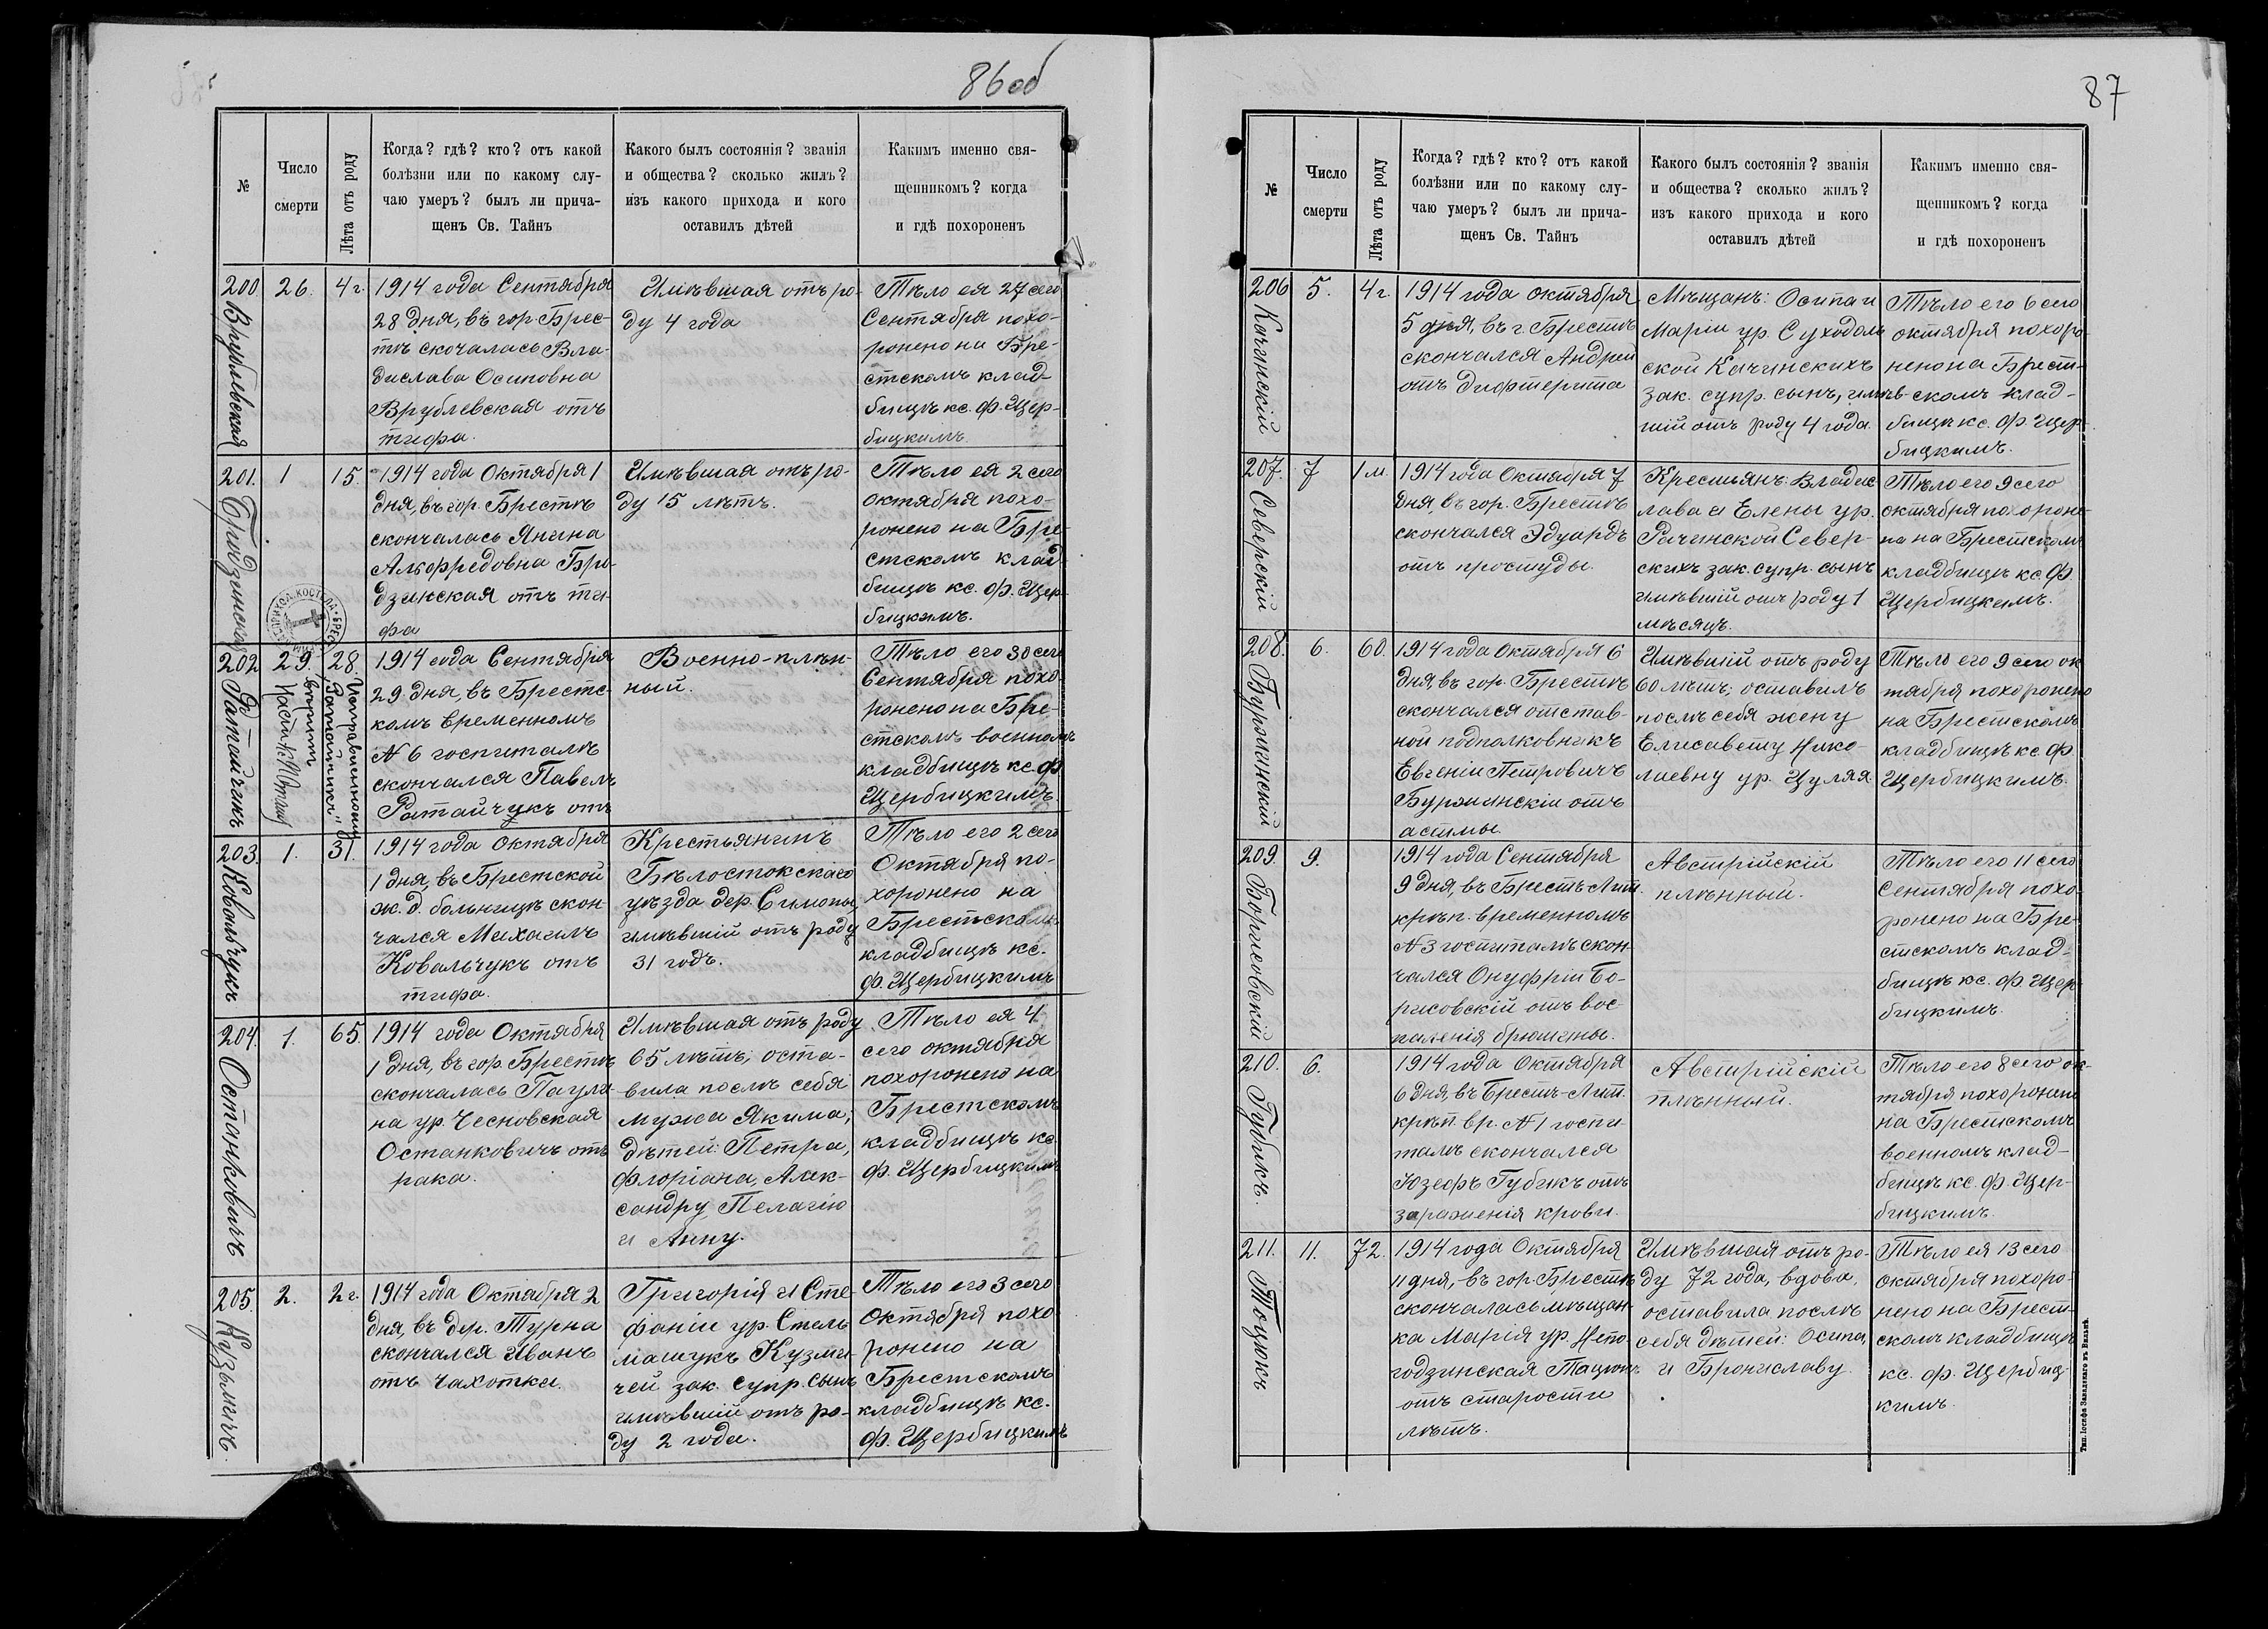 86 об
№
Число
смерти
Лѣта отъ роду
Когда? гдѣ? кто? отъ какой
болѣзни или по какому слу-
чаю умеръ? былъ ли прича-
щенъ Св. Тайнъ
Какого былъ состоянія? званія
и общества? сколько жилъ?
изъ какого прихода и кого
оставилъ дѣтей
Какимъ именно свя-
щенникомъ? когда
и гдѣ похороненъ
200.
Врублевская
26.
4 г.
1914 года Сентября
28 дня, въ гор. Брес-
тѣ скочалась Вла-
дислава Осиповна
Врублевская отъ
тифа.
Имѣвшая отъ ро-
ду 4 года
Тѣло ея 27 сего
Сентября похо-
ронено на Бре-
стскомъ клад-
бищѣ кс. Ф. Щер-
бицкимъ.
201.
1
15.
1914 года Октября 1
дня, въ гор. Брестѣ
скончалась Янина
Альфредовна Бро-
дзинская отъ ти-
фа
Имѣвшая отъ ро-
ду 15 лѣтъ.
Тѣло ея 2 сего
октября похо-
ронено на Бре-
стскомъ клад-
бищѣ кс. Ф. Щер-
бицкимъ.
202
Ратайчикъ
29.
28.
Исправленному
"Ратайчикъ"
вѣрить
1914 года Сентября
29 дня, въ Брестс-
комъ временномъ
№ 6 госпиталѣ
скончался Павелъ
Ратайчукъ отъ
Военно-плѣн-
ный.
Тѣло его 30 сего
Сентября похо-
ронено на Бре-
стскомъ военномъ
кладбищѣ кс. Ф.
Щербицкимъ.
203.
Ковальчукъ
1.
31.
1914 года Октября
1 дня, въ Брестской
ж. д. больницѣ скон-
чался Михаилъ
Ковальчукъ отъ
тифа.
Крестьянинъ
Бѣлостокскаго
уѣзда дер. Симоны,
имѣвшій отъ роду
31 годъ.
Тѣло его 2 сего
Октября по-
хоронено на
Брестскомъ
кладбищѣ кс.
Ф. Щербицкимъ
204.
Останковичъ
1.
65.
1914 года Октября
1 дня, въ гор. Брестѣ
скончалась Паули-
на ур. Чесновская
Останковичъ отъ
рака.
Имѣвшая отъ роду
65 лѣтъ; оста-
вила послѣ себя
мужа Якима;
дѣтей: Петра,
Флоріана, Алек-
сандру, Пелагію
и Анну.
Тѣло ея 4
сего октября
похоронено на
Брестскомъ
кладбищѣ кс.
Ф. Щербицкимъ
205.
Кузьмичъ.
2.
2 г.
1914 года Октября 2
дня, въ дер. Турна
скончался Иванъ
отъ чахотки.
Григорія и Сте-
фаніи ур. Стель-
машукъ Кузми-
чей зак. супр. сынъ
имѣвшій отъ ро-
ду 2 года.
Тѣло его 3 сего
Октября похо-
ронено на
Брестскомъ
кладбищѣ кс.
Ф. Щербицкимъ
87
№
Число
смерти
Лѣта отъ роду
Когда? гдѣ? кто? отъ какой
болѣзни или по какому слу-
чаю умеръ? былъ ли прича-
щенъ Св. Тайнъ
Какого былъ состоянія? званія
и общества? сколько жилъ?
изъ какого прихода и кого
оставилъ дѣтей
Какимъ именно свя-
щенникомъ? когда
и гдѣ похороненъ
206
Качинскій
5.
4 г.
1914 года октября
5 дня, въ г. Брестѣ
скончался Андрей
отъ дифтерита
Мѣщанъ: Осипа и
Маріи ур. Суходоль-
ской Качинскихъ
зак. супр. сынъ, имѣв-
шій отъ роду 4 года.
Тѣло его 6 сего
октября похоро-
нено на Брест-
скомъ клад-
бищѣ кс. Ф. Щер-
бицкимъ.
207.
Северскій
7
1 м.
1914 года Октября 7
дня, въ гор. Брестѣ
скончался Эдуардъ
отъ простуды.
Крестьянъ: Владис-
лава и Елены ур.
Рачинской Север-
скихъ зак. супр. сынъ
имѣвшій отъ роду 1
мѣсяцъ.
Тѣло его 9 сего
октября похороне-
но на Брестскомъ
кладбищѣ кс. Ф.
Щербицкимъ.
208.
Буржинскій
6.
60.
1914 года Октября 6
дня, въ гор. Брестѣ
скончался отстав-
ной подполковникъ
Евгеній Петровичъ
Буржинскій отъ
астмы.
Имѣвшій отъ роду
60 лѣтъ; оставилъ
послѣ себя жену
Елисавету Нико-
лаевну ур. Цуляя.
Тѣло его 9 сего ок
тября похоронено
на Брестскомъ
кладбищѣ кс. Ф.
Щербицкимъ.
209.
Борисовскій
9.
1914 года Сентября
9 дня, въ Брестъ-Лит.
крѣп. временномъ
№ 3 госпиталѣ скон-
чался Онуфрій Бо-
рисовскій отъ вос-
паленія брюшины.
Австрійскій
плѣнный.
Тѣло его 11 сего
Сентября похо-
ронено на Бре-
стскомъ клад-
бищѣ кс. Ф. Щер-
бицкимъ.
210.
Губикъ.
6.
1914 года Октября
6 дня, въ Брестъ-Лит.
крѣп. вр. № 1 госпи-
талѣ скончался
Юзефъ Губикъ отъ
зараженія крови.
Австрійскій
плѣнный.
Тѣло его 8 сего ок-
тября похоронено
на Брестскомъ
военномъ клад-
бищѣ кс. Ф. Щер-
бицкимъ.
211.
Тоцюкъ
11.
72.
1914 года Октября
11 дня, въ гор. Брестѣ
скончалась мѣщан-
ка Марія ур. Непо-
годзинская Тацюкъ
отъ старости
лѣтъ.
Имѣвшая отъ ро-
ду 72 года, вдова,
оставила послѣ
себя дѣтей: Осипа,
и Брониславу.
Тѣло ея 13 сего
октября похоро-
нено на Брест-
скомъ кладбищѣ
кс. Ф. Щербиц-
кимъ.
Тип. Іосифа Завадзкаго въ Вильнѣ.